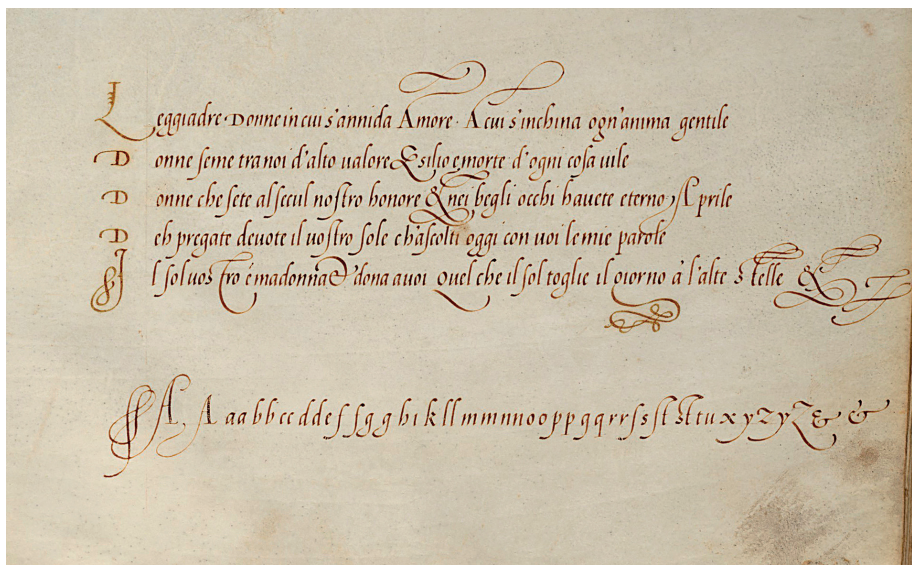 Leggiadre Donne in cui s'annida Amore. A cui s'inchina ogn'anima gentile
Donne seme tra noi d'alto valore Esilio e morte d'ogni cosa vile
Donne che sete al secul nostro honore & nei begli occhi havete eterno Aprile
Deh pregate devote il vostro Sole ch'ascolti oggi con voi le mie parole
Il sol vostro è madonna & dona a voi Quel che il sol toglie il giorno à l'alte stelle &
A, A a a b b c c d d e f f g g h i k l l m m m n n o o p p q q r r s s st st t u x y z y z & &